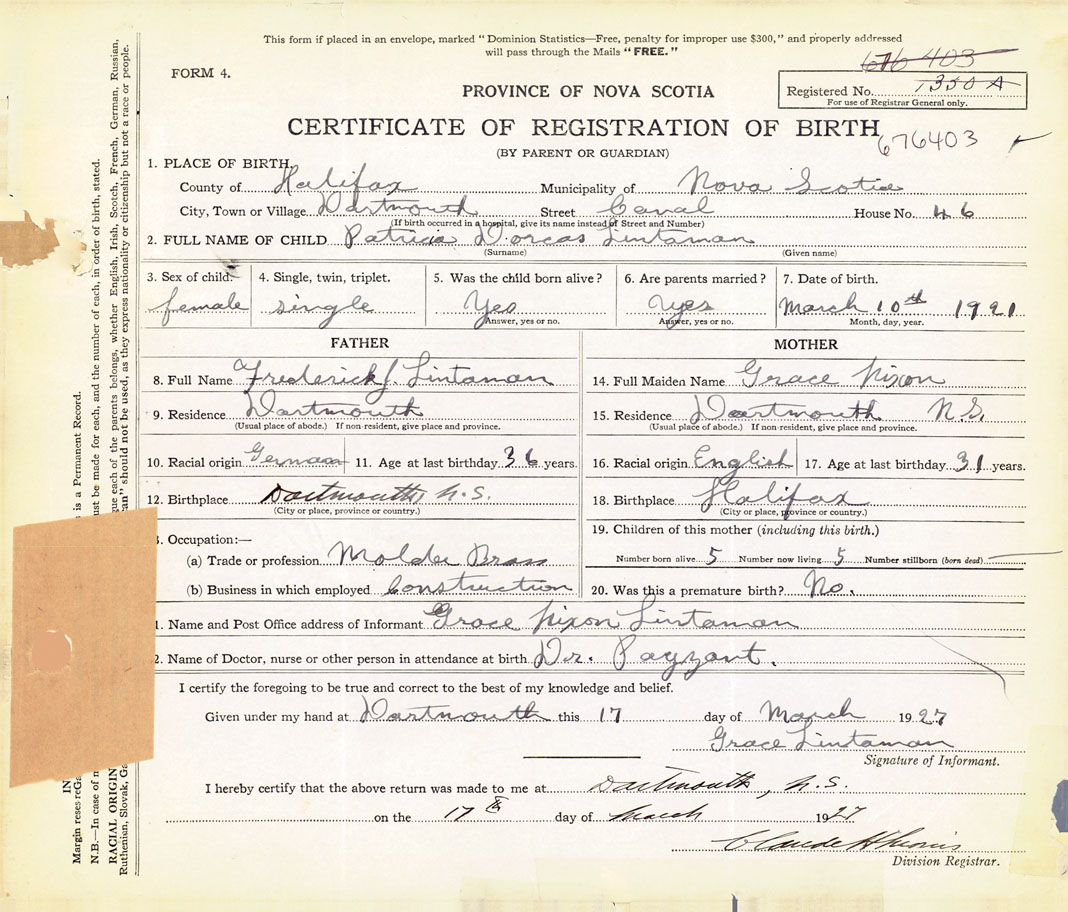 This form if placed in an envelope, marked "Dominion Statistics—Free, penalty for improper use $300," and properly addressed
will pass through the Mails "FREE."
676 403
FORM 4.
Registered No. 1350 A
For use of Registrar General only.
PROVINCE OF NOVA SCOTIA
CERTIFICATE OF REGISTRATION OF BIRTH
676403
(BY PARENT OR GUARDIAN)
1. PLACE OF BIRTH.
County of Halifax Municipality of Nova Scotia
City, Town or Village Dartmouth Street Canal House No. 46
(If birth occurred in a hospital, give its name instead of Street and Number)
2. FULL NAME OF CHILD Patricia Dorcas Lintaman
(Surname) (Given name)
3. Sex of child. 4. Single, twin, triplet. 5. Was the child born alive? 6. Are parents married? 7. Date of birth.
female single Yes yes March 10th 1921
Answer, yes or no. Answer, yes or no. Month, day, year.
FATHER
8. Full Name Frederick J. Lintaman
9. Residence Dartmouth
(Usual place of abode.) If non-resident, give place and province.
10. Racial origin German 11. Age at last birthday 36 years.
12. Birthplace Dartmouth, N.S.
(City or place, province or country.)
3. Occupation:—
(a) Trade or profession Molder Brass
(b) Business in which employed Construction
MOTHER
14. Full Maiden Name Grace Nixon
15. Residence Dartmouth N.S.
(Usual place of abode.) If non-resident, give place and province.
16. Racial origin English 17. Age at last birthday 31 years.
18. Birthplace Halifax
(City or place, province or country.)
19. Children of this mother (including this birth.)
Number born alive 5 Number now living 5 Number stillborn (born dead)
20. Was this a premature birth? No.
1. Name and Post Office address of Informant Grace Nixon Lintaman
2. Name of Doctor, nurse or other person in attendance at birth Dr. Payzant.
I certify the foregoing to be true and correct to the best of my knowledge and belief.
Given under my hand at Dartmouth this 17 day of March 1927
Grace Lintaman
Signature of Informant.
I hereby certify that the above return was made to me at Dartmouth, N.S.
on the 17th day of March 1927
Division Registrar.
IN
Margin reses
is a Permanent Record.
N.B.—In case of
ust be made for each, and the number of each, in order of birth, stated.
RACIAL ORIGIN
gue each of the parents belongs, whether English, Irish, Scotch, French, German, Russian,
Ruthenian, Slovak,
an" should not be used, as they express nationality or citizenship but not a race or people.